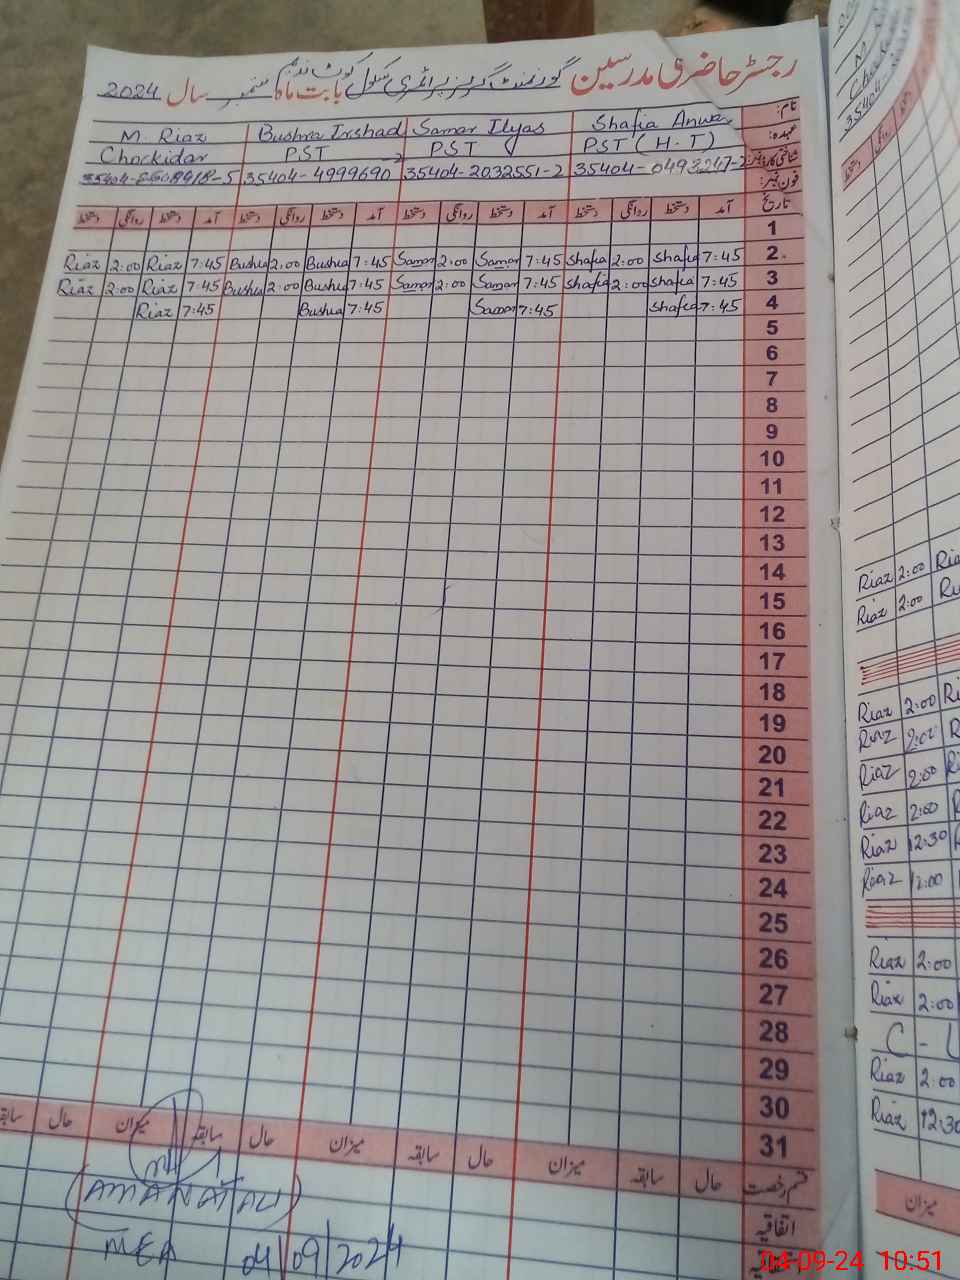 رجسٹر حاضری مدرسین گورنمنٹ گرلز پرائمری سکول کوٹ ندیم بابت ماہ ستمبر سال 2024
نام: Shafia Anwar Samar Ilyas Bushra Irshad M. Riaz
عہدہ: PST (H.T) PST PST Chockidar
شناختی کارڈ نمبر: 35404-0493247-2 35404-2032551-2 35404-4999690-2 35404-
فون نمبر:
تاریخ آمد دستخط روانگی دستخط آمد دستخط روانگی دستخط آمد دستخط روانگی دستخط آمد دستخط روانگی دستخط
1
2 7:45 Shafia 2:00 Shafia 7:45 Samar 2:00 Samar 7:45 Bushra 2:00 Bushra 7:45 Riaz 2:00 Riaz
3 7:45 Shafia 2:00 Shafia 7:45 Samar 2:00 Samar 7:45 Bushra 2:00 Bushra 7:45 Riaz 2:00 Riaz
4 7:45 Shafia 7:45 Samar 7:45 Bushra 7:45 Riaz
5
6
7
8
9
10
11
12
13
14
15
16
17
18
19
20
21
22
23
24
25
26
27
28
29
30
31
قسم رخصت حال سابقہ میزان حال سابقہ میزان حال سابقہ میزان حال سابقہ
اتفاقیہ
(AMANAT ALI)
MEA 04/09/2024
35404-
دستخط روانگی دستخط
Riaz 2:00 Ria
Riaz 2:00
Riaz 2:00
Riaz 2:00
Riaz 2:00
Riaz 2:00
Riaz 12:30
Riaz 12:00
Riaz 2:00
Riaz 2:00
C - L
Riaz 2:00
Riaz 12:30
میزان
04-09-24 10:51